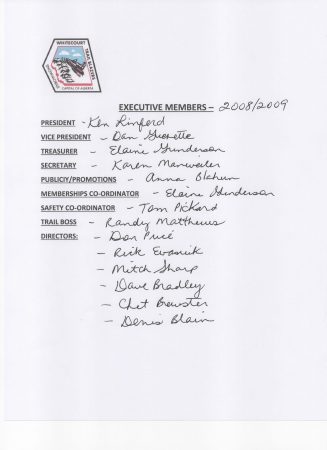 WHITECOURT
TRAIL BLAZERS
SNOWMOBILE
CAPITAL OF ALBERTA
EXECUTIVE MEMBERS – 2008/2009
PRESIDENT - Ken Linford
VICE PRESIDENT – Dan
TREASURER – Elaine Gunderson
SECRETARY – Karen Manweiler
PUBLICIY/PROMOTIONS – Anna
MEMBERSHIPS CO-ORDINATOR – Elaine Gunderson
SAFETY CO-ORDINATOR – Tom Pickard
TRAIL BOSS – Randy Matthews
DIRECTORS: – Don Price
– Rick
– Mitch Sharp
– Dave Bradley
– Chet Brewster
– Denis Blain